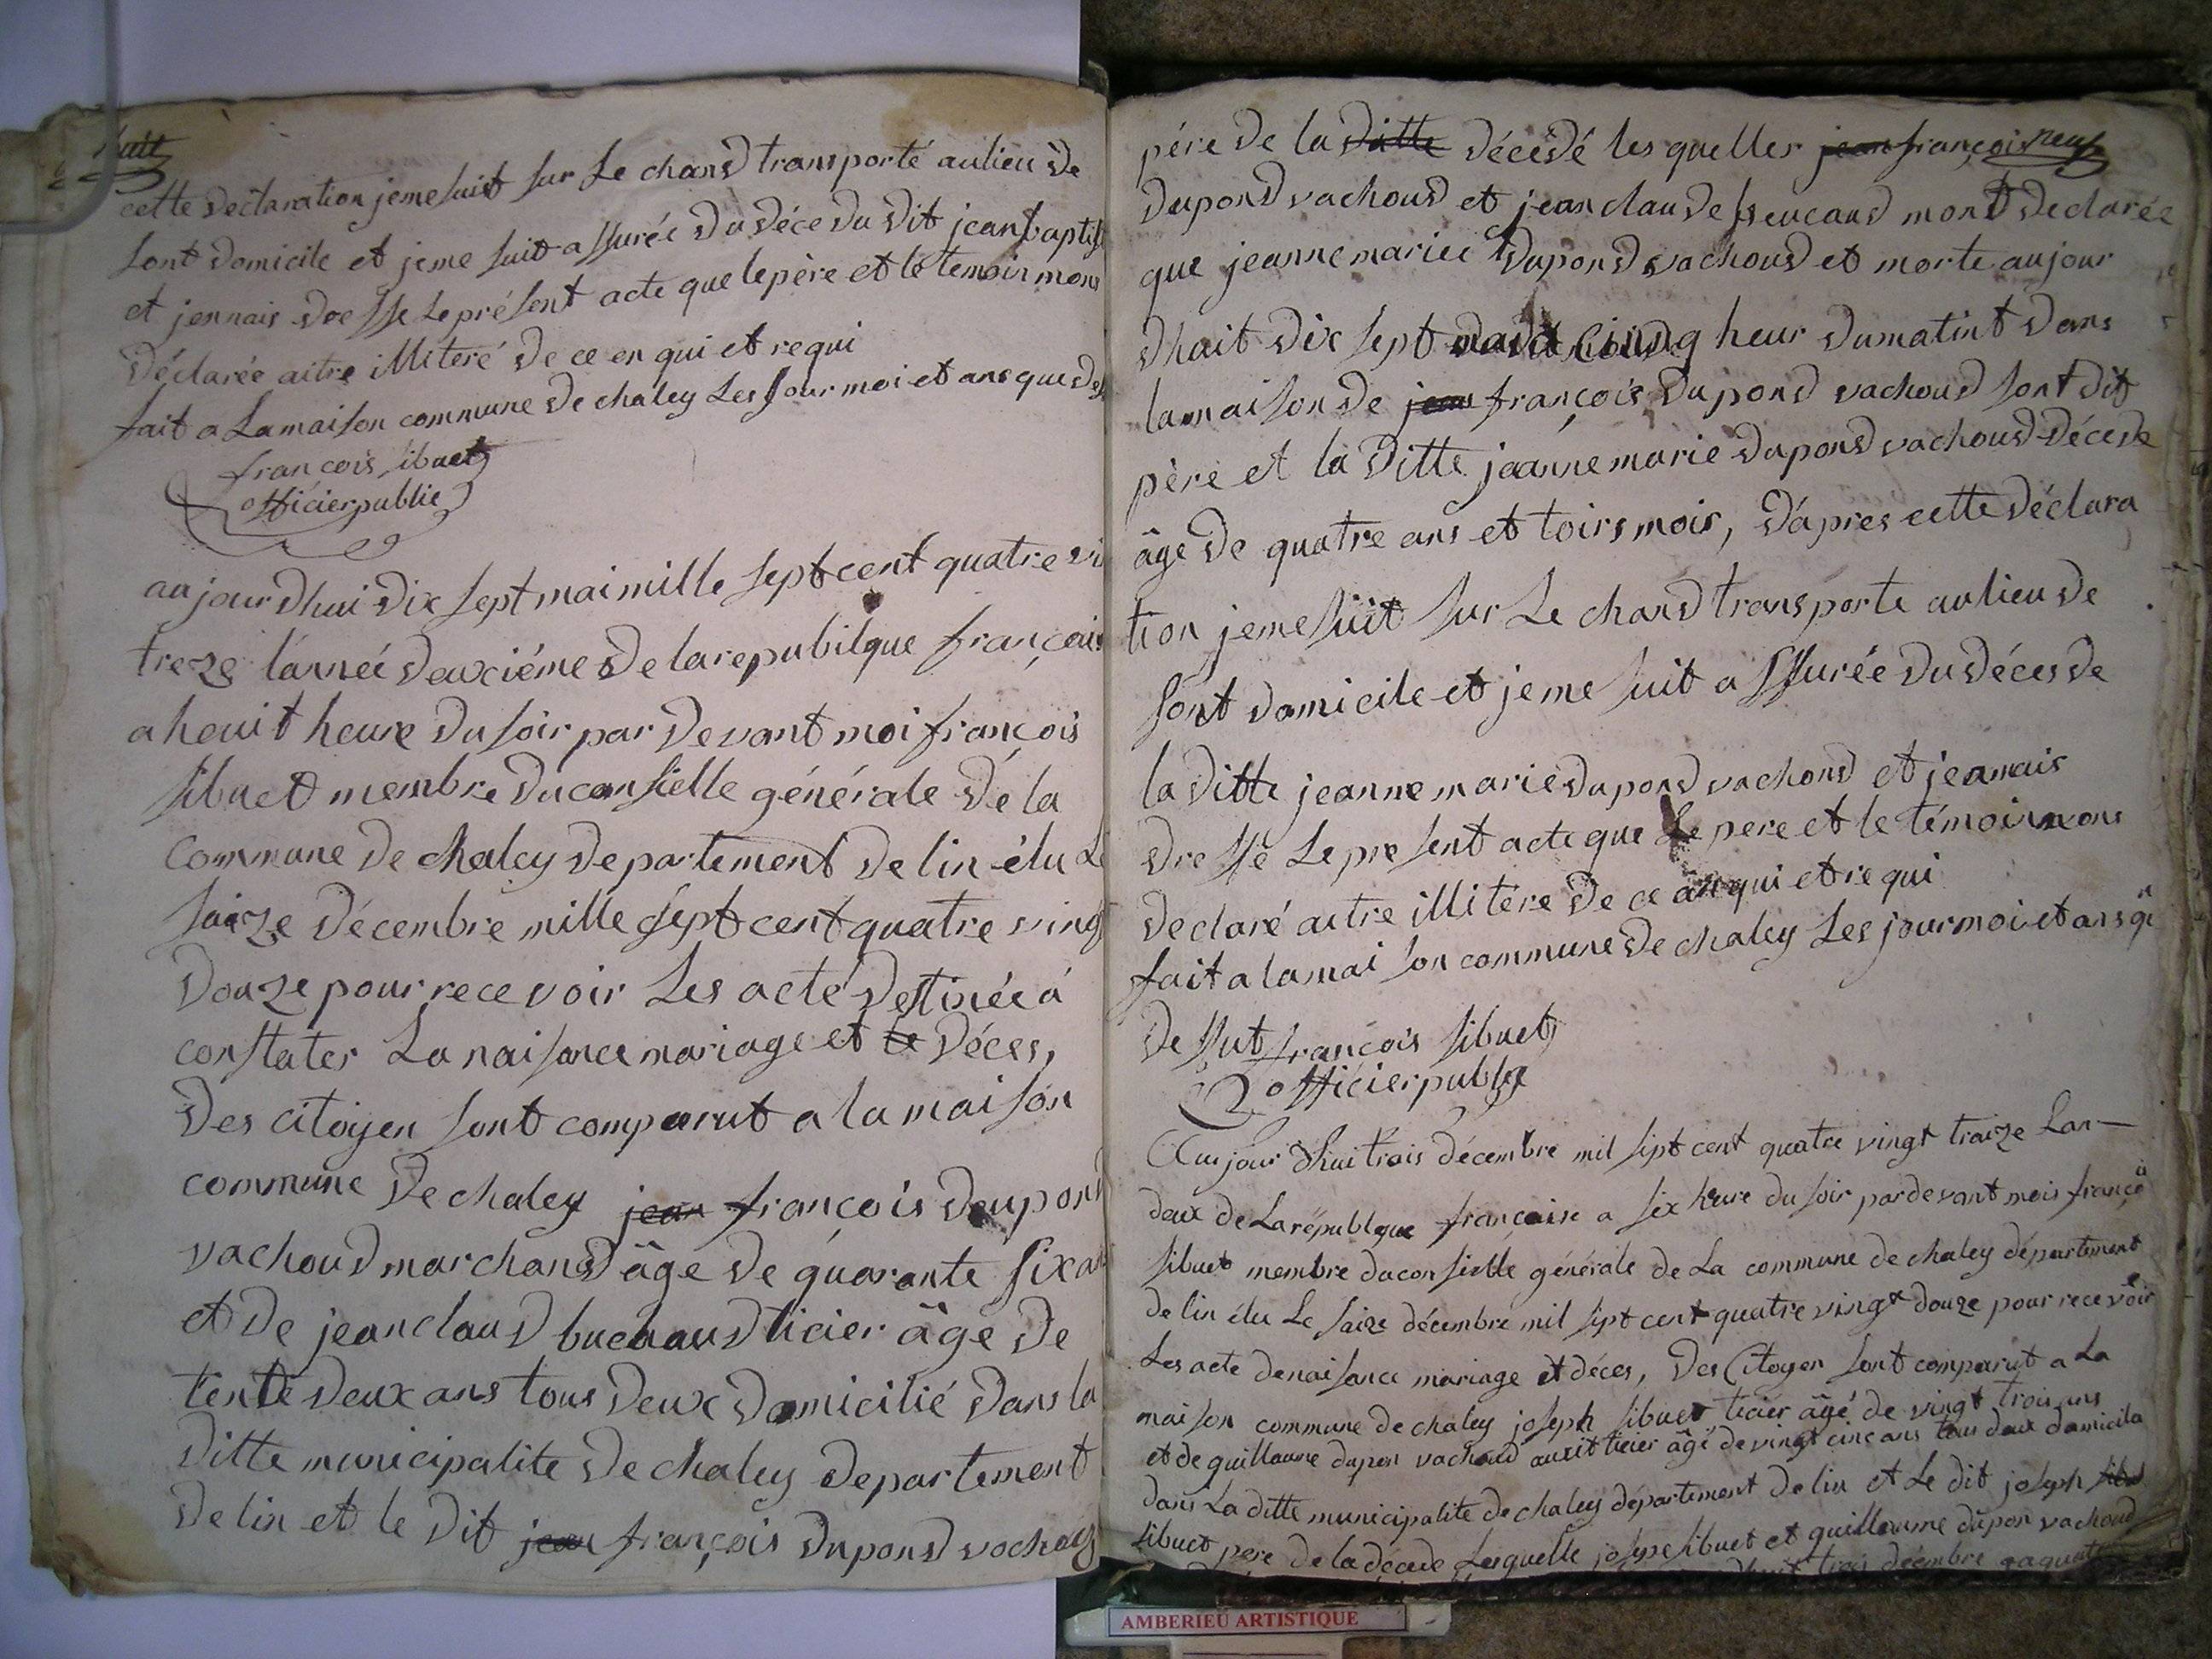 huit
cette déclaration jemesuist sur Le chand transporté aulieu de
sont domicile et jeme suit assurée du déce du dit jeanbaptis
et jennais dresse Leprésent acte que lepère et le temoin mons
déclarée aitre illiteré de ce en qui et requi
fait a Lamaison commune de chaley Les Jour moi et ans que des
françois sibuet
officier publie
aujourdhui dix sept mai mille sept cent quatre vi
treze lánneé deuxiéme de la repubilque françois
a heuit heure du soir par devant moi françois
sibuet membre du consielle générale de la
commune de chaley departement de lin élu Le
saize décembre mille sept cent quatre ving
douze pour recevoir Les acté destinée à
constater La naisance mariage et le déces,
des citoyen sont comparut a la maison
commune de chaley jean françois dupond
vachoud marchand âge de quarante six an
et de jean claud buchaud ticier âge de
tente deux ans tous deux domicilié dans la
ditte municipalite de chaley departement
de lin et le dit jean françois dupond vachoud
père de la ditte décédé les quelles jean françois neuf
dupond vachoud et jean claude mont declarée
que jeanne mariee dupond vachoud et morte aujour
dhuit dix sept cinq heur dumatint dans
lamaison de jean françois dupond vachoud sont dit
père et la ditte jeanne marie dupond vachoud décede
âge de quatre ans et toirs mois, dápres cette déclara
tion jemesuit sur Le chand transporte aulieu de
sont domicile et jeme suit assurée du déces de
la ditte jeanne marie dupond vachoud et jeanais
dressé Le present acte que Le pere et le témoin mons
declaré aitre illitere de ce anqui et requi
fait a lamaison commune de chaley Les jour moi et ans qe
dessut françois sibuet
officier publqe
Aujour dhui trois décembre mil sipt cent quatre vingt traize Lan—
deux de La républque françoise a six heure du soir pardevant mois françois
sibuet membre du consielle générale de La commune de chaley département
de lin élu Le saize décembre mil sipt cent quatre vingt douze pour recevoir
Les acte de naisance mariage et déces, des Citoyen sont comparut a La
maison commune de chaley joseph sibuet ticier âgé de vingt trois ans
et de guillaume dupon vachoud aussit ticier âgé de vingt cinc ans tous deux domicila
dans La ditte municipalite de chaley département de lin et Le dit joseph
sibuet pere de la décede Lesquelle josepe sibuet et guillaume dupon vachoud
trois décembre
AMBERIEU ARTISTIQUE